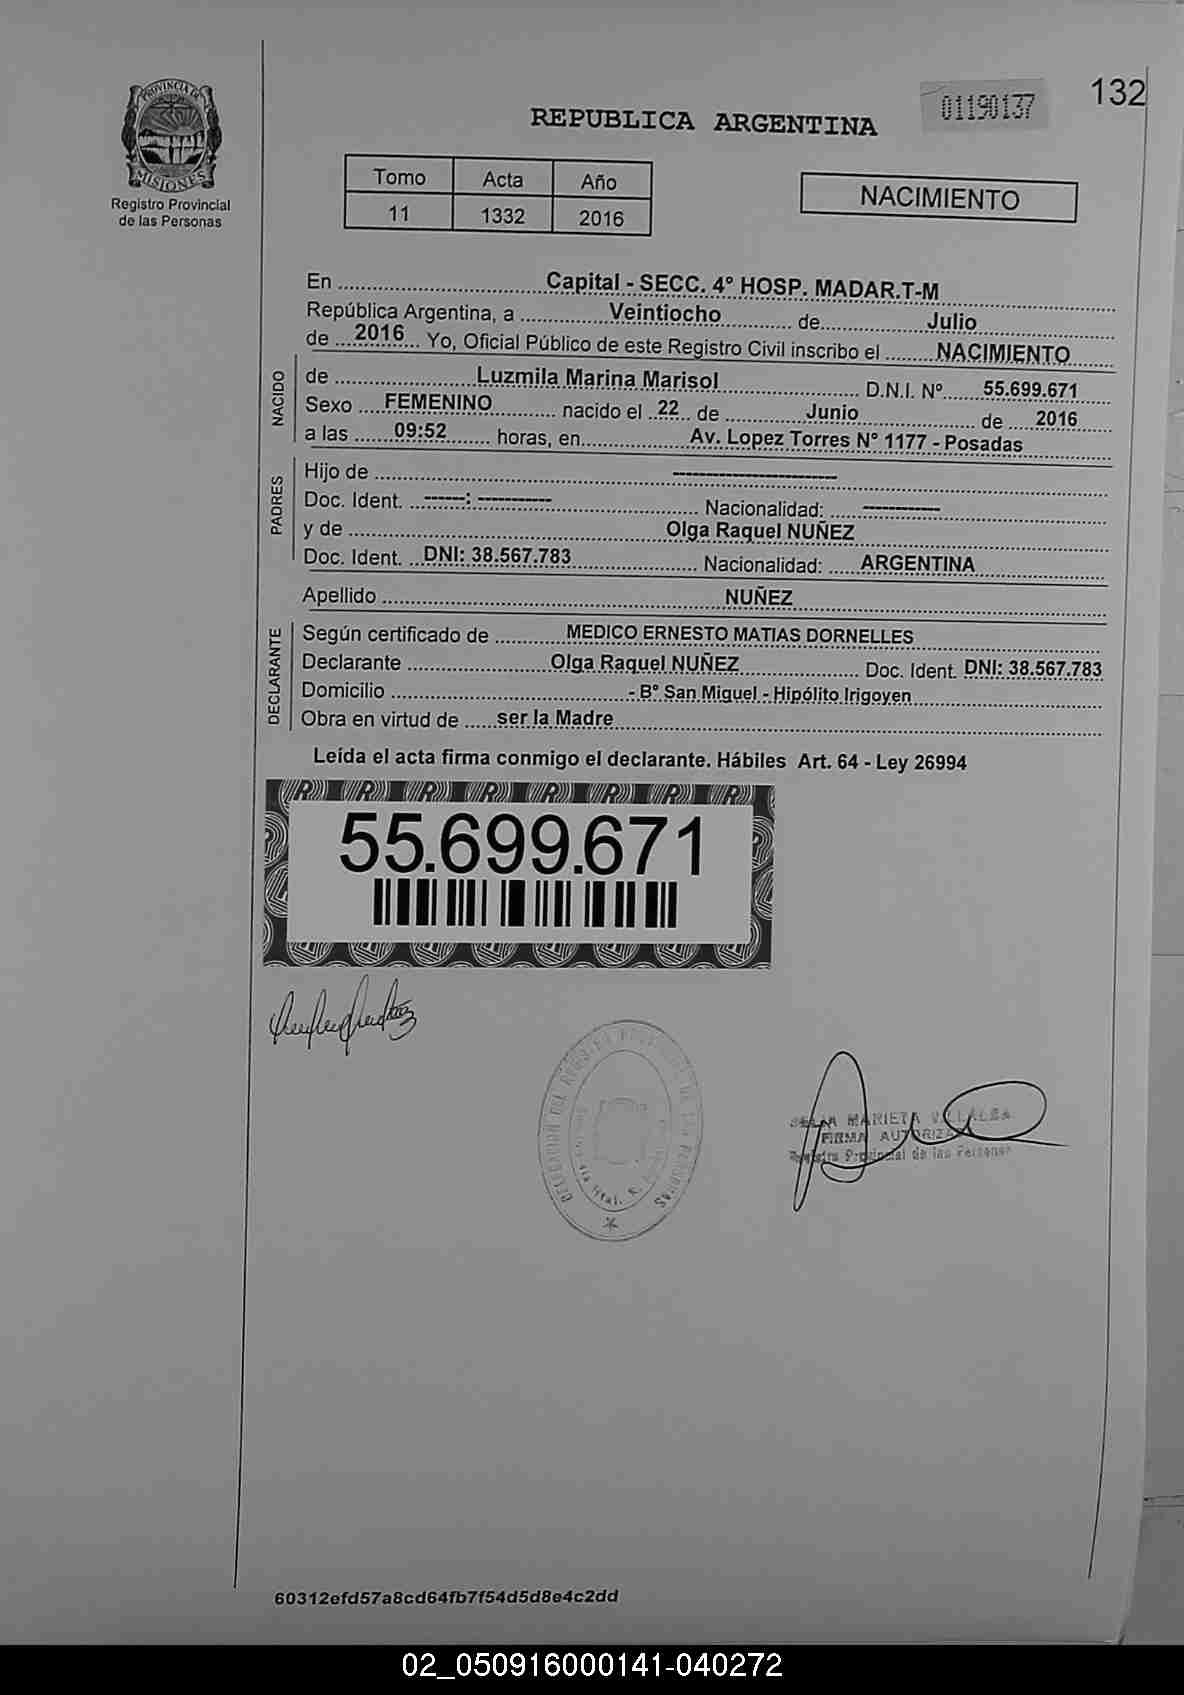 PROVINCIA DE
MISIONES
Registro Provincial
de las Personas
01190137
132
REPUBLICA ARGENTINA
Tomo Acta Año
11 1332 2016
NACIMIENTO
En Capital - SECC. 4° HOSP. MADAR.T-M
República Argentina, a Veintiocho de Julio
de 2016 Yo, Oficial Público de este Registro Civil inscribo el NACIMIENTO
NACIDO
de Luzmila Marina Marisol D.N.I. N° 55.699.671
Sexo FEMENINO nacido el 22 de Junio de 2016
a las 09:52 horas, en Av. Lopez Torres N° 1177 - Posadas
PADRES
Hijo de --------------------
Doc. Ident. ------: ----------- Nacionalidad: ------------
y de Olga Raquel NUÑEZ
Doc. Ident. DNI: 38.567.783 Nacionalidad: ARGENTINA
Apellido NUÑEZ
DECLARANTE
Según certificado de MEDICO ERNESTO MATIAS DORNELLES
Declarante Olga Raquel NUÑEZ Doc. Ident. DNI: 38.567.783
Domicilio - B° San Miguel - Hipólito Irigoyen
Obra en virtud de ser la Madre
Leída el acta firma conmigo el declarante. Hábiles Art. 64 - Ley 26994
55.699.671
DELEGACION DEL REGISTRO PROVINCIAL DE LAS PERSONAS
MARIETA VILLALBA
FIRMA AUTORIZADA
Registro Provincial de las Personas
60312efd57a8cd64fb7f54d5d8e4c2dd
02_050916000141-040272